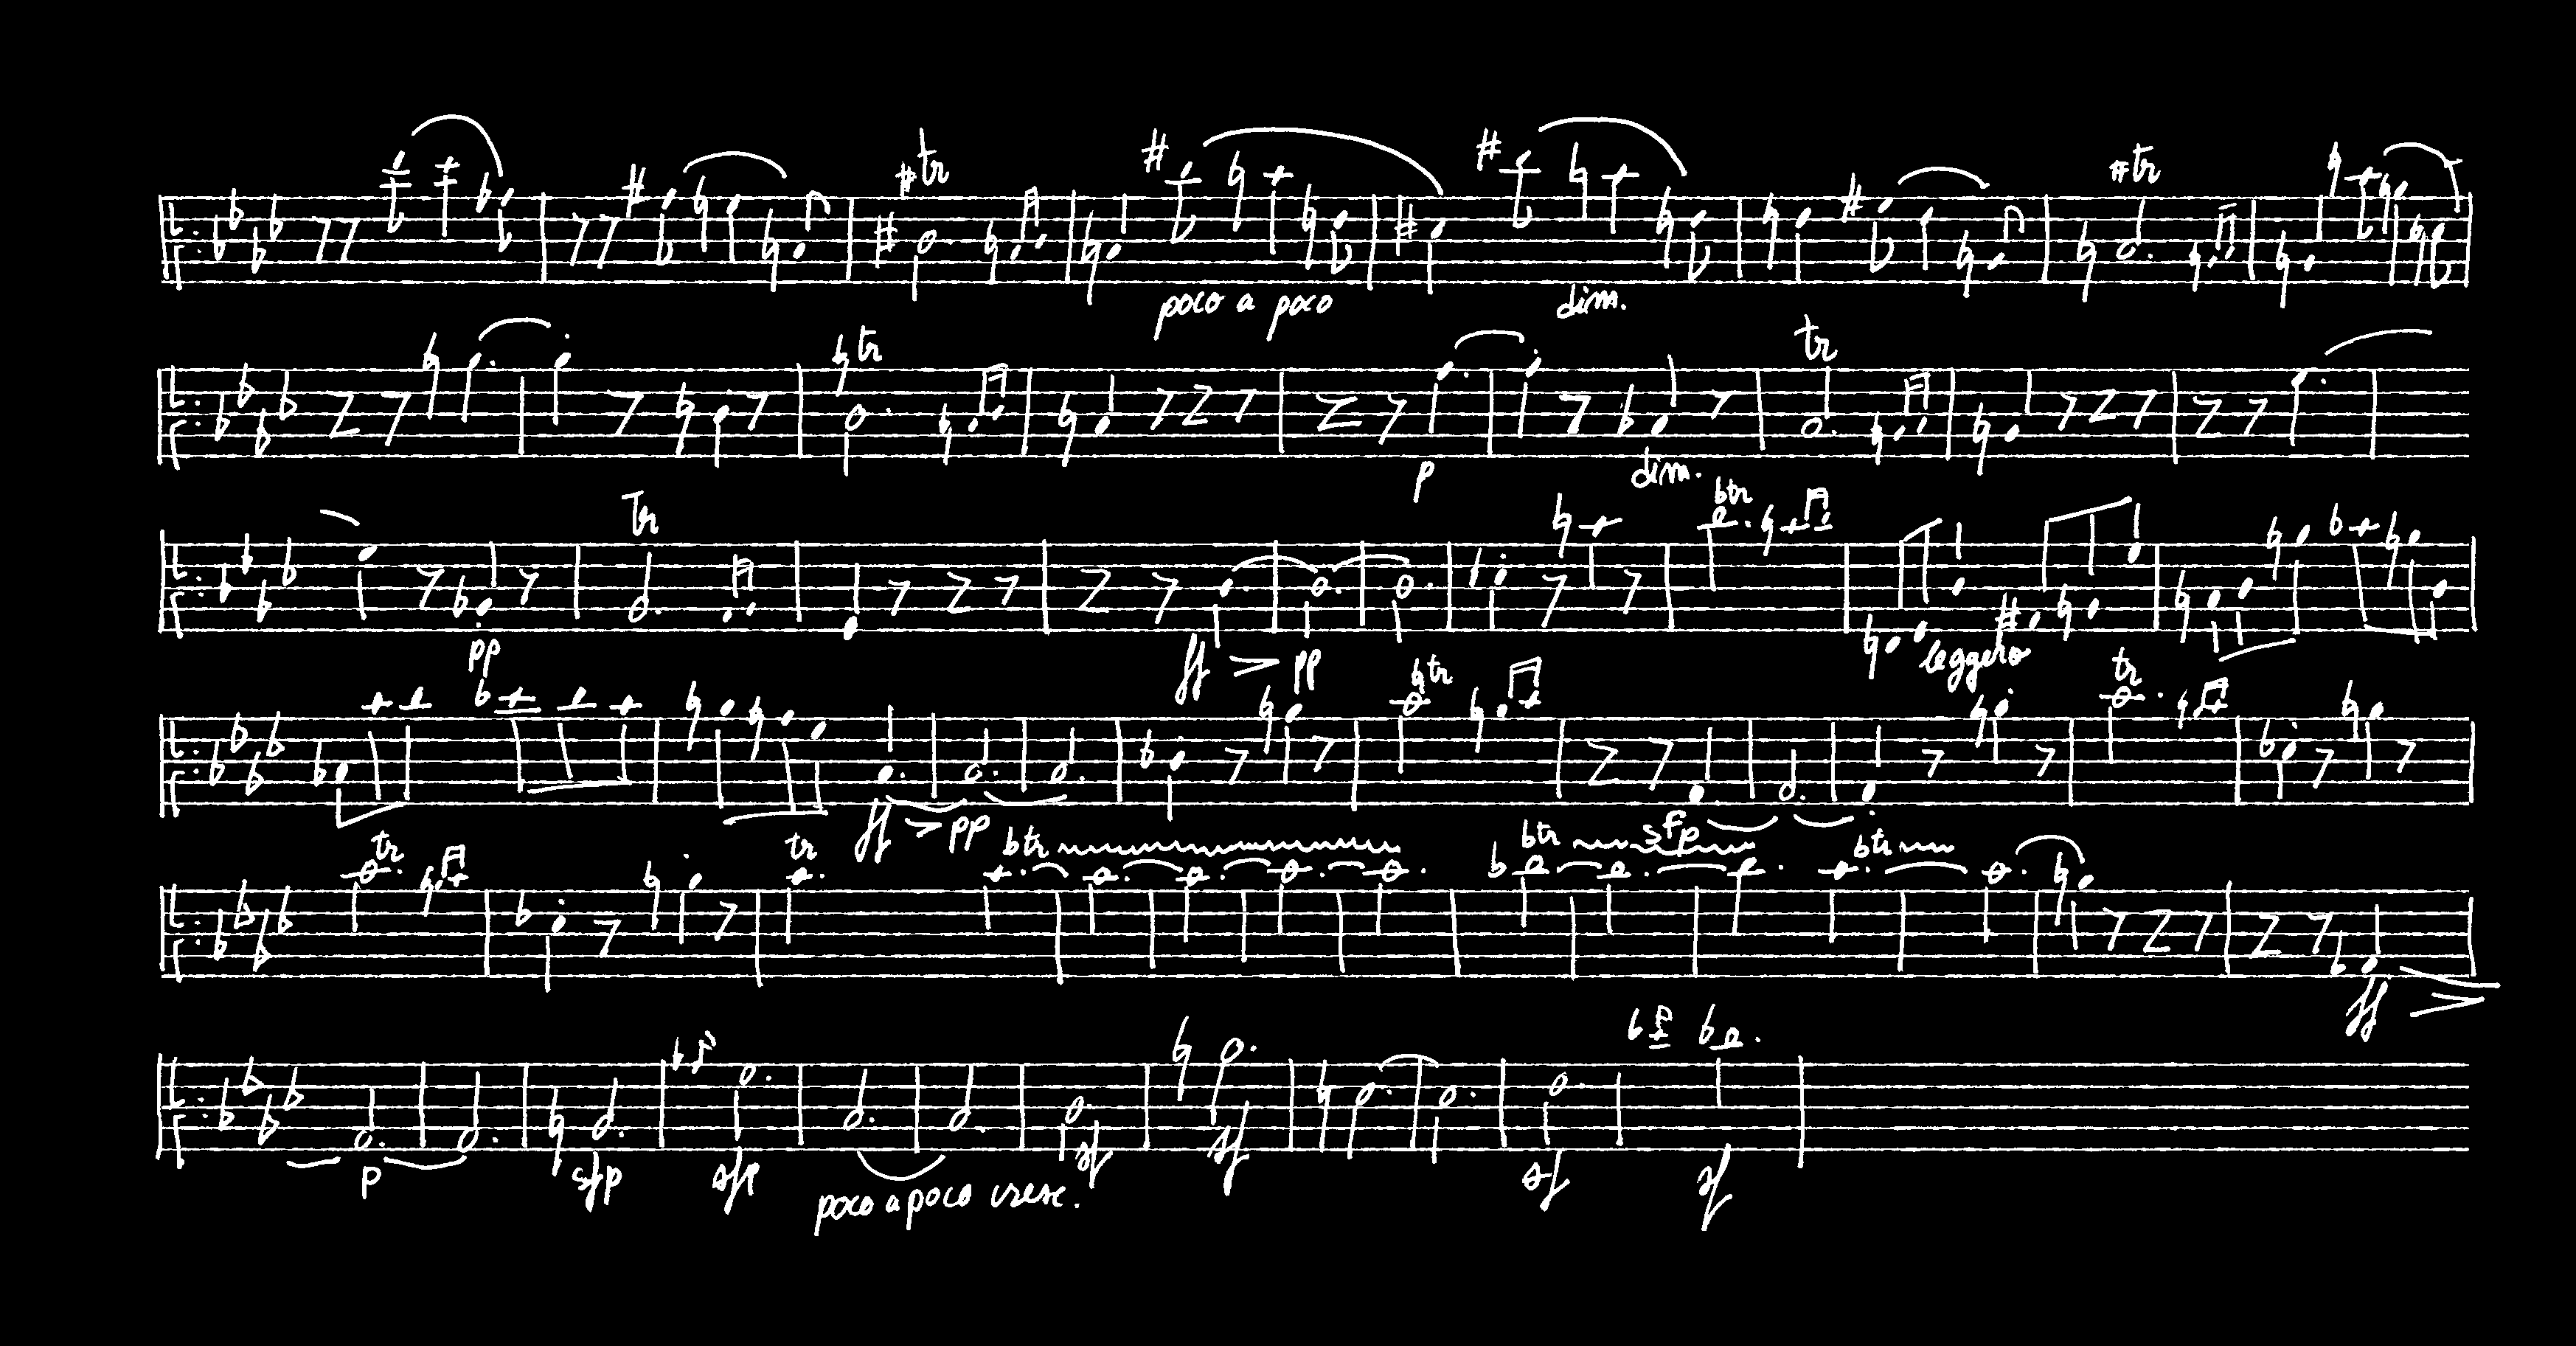 tr tr
poco a poco dim.
tr tr
p dim.
tr tr
pp ff pp leggero
tr tr
ff pp sfp
tr tr tr tr tr
ff
p sfp sfp poco a poco cresc. sf sf sf sf